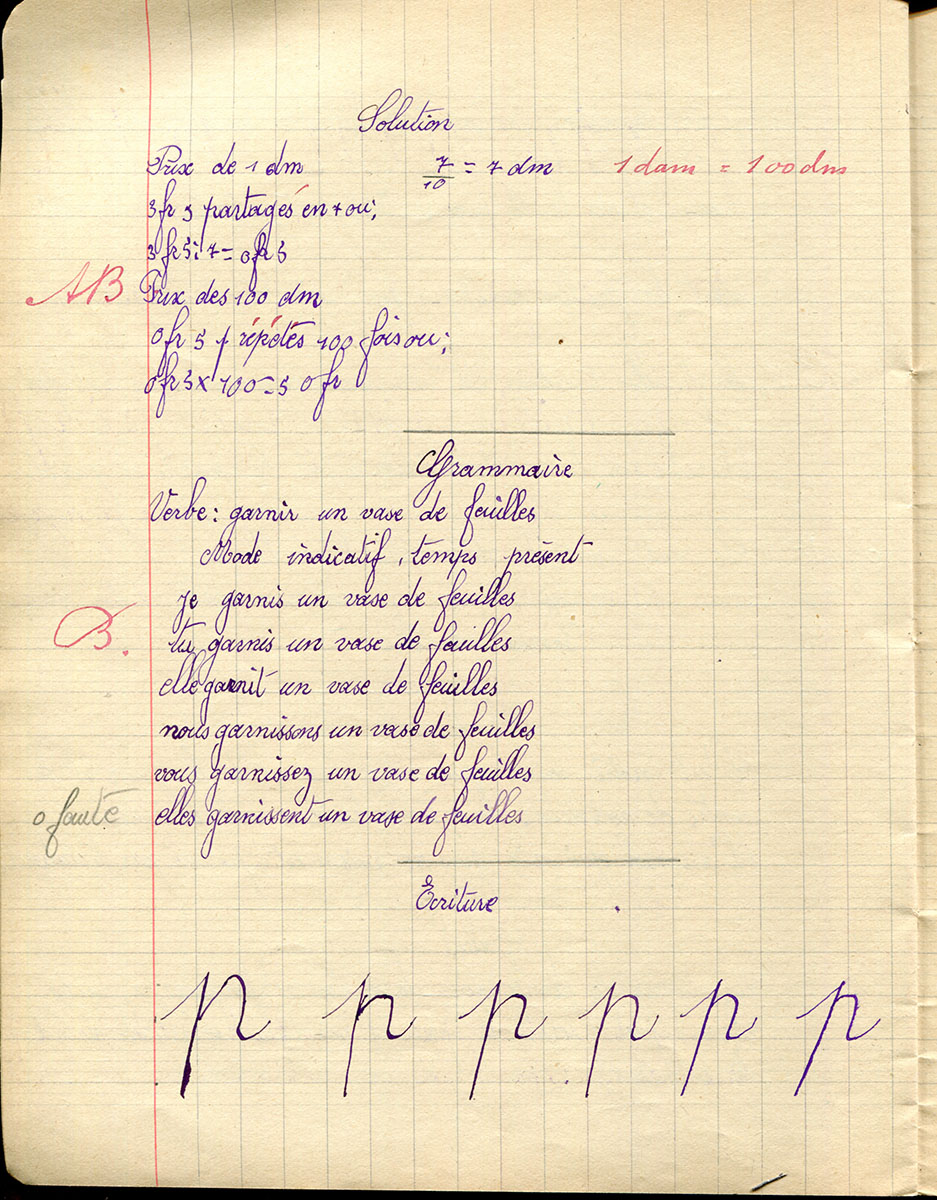 Solution
Prix de 1 dm 7/10 = 7 dm 1 dam = 100 dm
3 fr 5 partagés en 7 ou;
3 fr 5 : 7 = 0 fr 5
AB
Prix des 100 dm
0 fr 5 répétés 100 fois ou;
0 fr 5 x 100 = 5 0 fr
Grammaire
Verbe : garnir un vase de feuilles
Mode indicatif, temps présent
je garnis un vase de feuilles
B.
tu garnis un vase de feuilles
elle garnit un vase de feuilles
nous garnissons un vase de feuilles
vous garnissez un vase de feuilles
0 faute elles garnissent un vase de feuilles
Écriture
p p p p p p